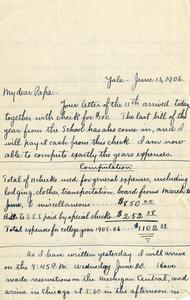 Yale - June 13, 1906.
My dear Papa:-
Your letter of the 11th arrived today
together with check for $ The last bill of the
year from the School has also come in, and I
will pay at cash from this check. I am now
able to compute exactly the years expenses.
Computation
Total of checks used for general expenses, including
lodging, clothes, transportation, board from March
June, & miscellaneous - $850.00
Bill to S.S.S. paid by special checks $252.
Total expenses for college year 1905-06 - $1102.
As I have written yesterday I will arrive
on the 9:45 P.M. Wednesday June 20. Have
made reservations on the Michigan Central, and
arrive in Chicago at 3:30 in the afternoon in-